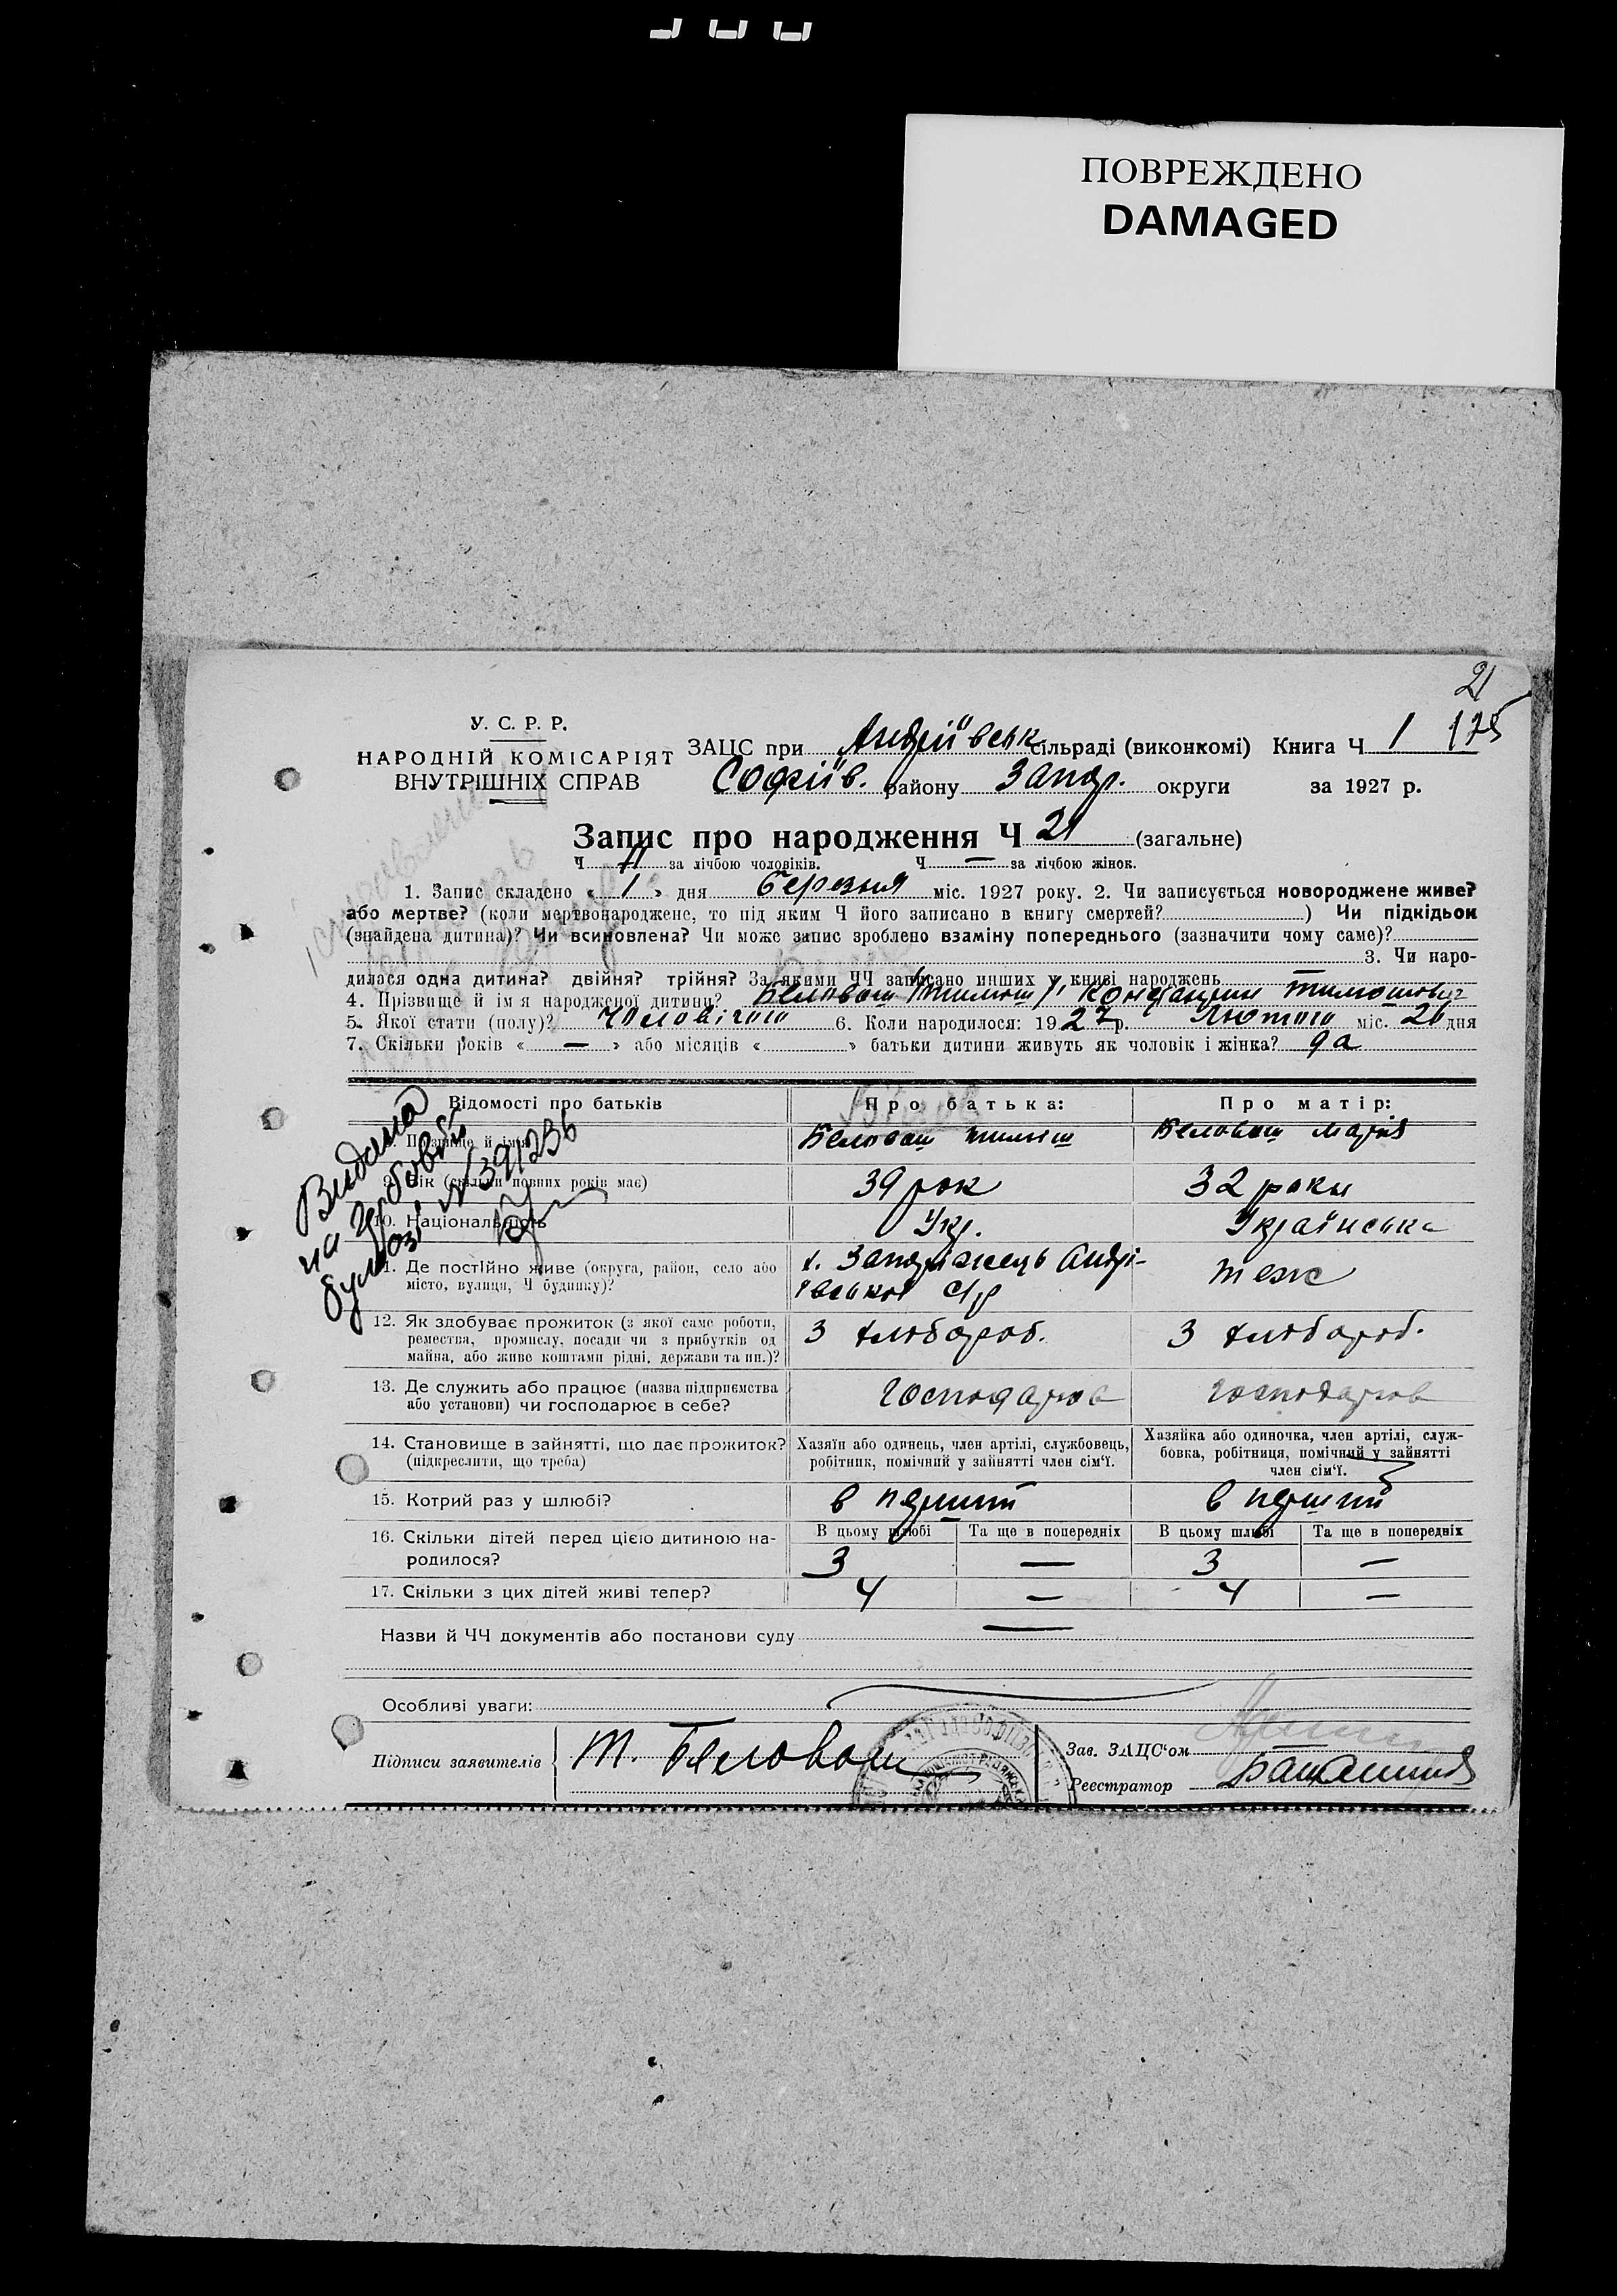 ПОВРЕЖДЕНО
DAMAGED
21
175
У. С. Р. Р.
НАРОДНІЙ КОМІСАРІЯТ
ВНУТРІШНІХ СПРАВ
ЗАЦС при Андріївськ сільраді (виконкомі) Книга Ч 1
Софіїв. району Запор. округи за 1927 р.
Запис про народження Ч 21 (загальне)
Ч 11 за лічбою чоловіків. Ч — за лічбою жінок.
1. Запис складено « 1 » дня березня міс. 1927 року. 2. Чи записується новороджене живе?
або мертве? (коли мертвонароджене, то під яким Ч його записано в книгу смертей? ) Чи підкідьок
(знайдена дитина)? Чи всиновлена? Чи може запис зроблено взаміну попереднього (зазначити чому саме)?
3. Чи наро-
дилася одна дитина? двійня? трійня? За якими ЧЧ записано инших у книзі народжень
4. Прізвище й ім'я народженої дитини? Константин Тимошович
5. Якої стати (полу)? Чоловічої 6. Коли народилося: 1927 р. Лютого міс. 26 дня
7. Скільки років « — » або місяців « » батьки дитини живуть як чоловік і жінка? да
Відомості про батьків Про батька: Про матір:
Прізвище й імя Беловош Тимош Беловош Марія
9. Вік (скільки повних років має) 39 рок 32 роки
10. Національність Укр. Українська
11. Де постійно живе (округа, район, село або місто, вулиця, Ч будинку)? х. Запоріжець Андрі-
ївської с/р теж
12. Як здобуває прожиток (з якої саме роботи,
ремества, промислу, посади чи з прибутків од
майна, або живе коштами рідні, держави та ин.)? З хлібороб. З хлібороб.
13. Де служить або працює (назва підприємства
або установи) чи господарює в себе? господарює господарює
14. Становище в зайнятті, що дає прожиток?
(підкреслити, що треба)
Хазяїн або одинець, член артілі, службовець,
робітник, помічний у зайнятті член сім'ї.
Хазяйка або одиночка, член артілі, служ-
бовка, робітниця, помічний у зайнятті
член сім'ї.
15. Котрий раз у шлюбі? в перший в перший
16. Скільки дітей перед цією дитиною на-
родилося?
В цьому шлюбі Та ще в попередніх В цьому шлюбі Та ще в попередніх
3 — 3 —
17. Скільки з цих дітей живі тепер? 4 — 4 —
Назви й ЧЧ документів або постанови суду —
Особливі уваги:
Підписи заявителів Т. Беловош
Зав. ЗАЦС'ом
Реєстратор
Видана
на гербовій
бумазі N 391236